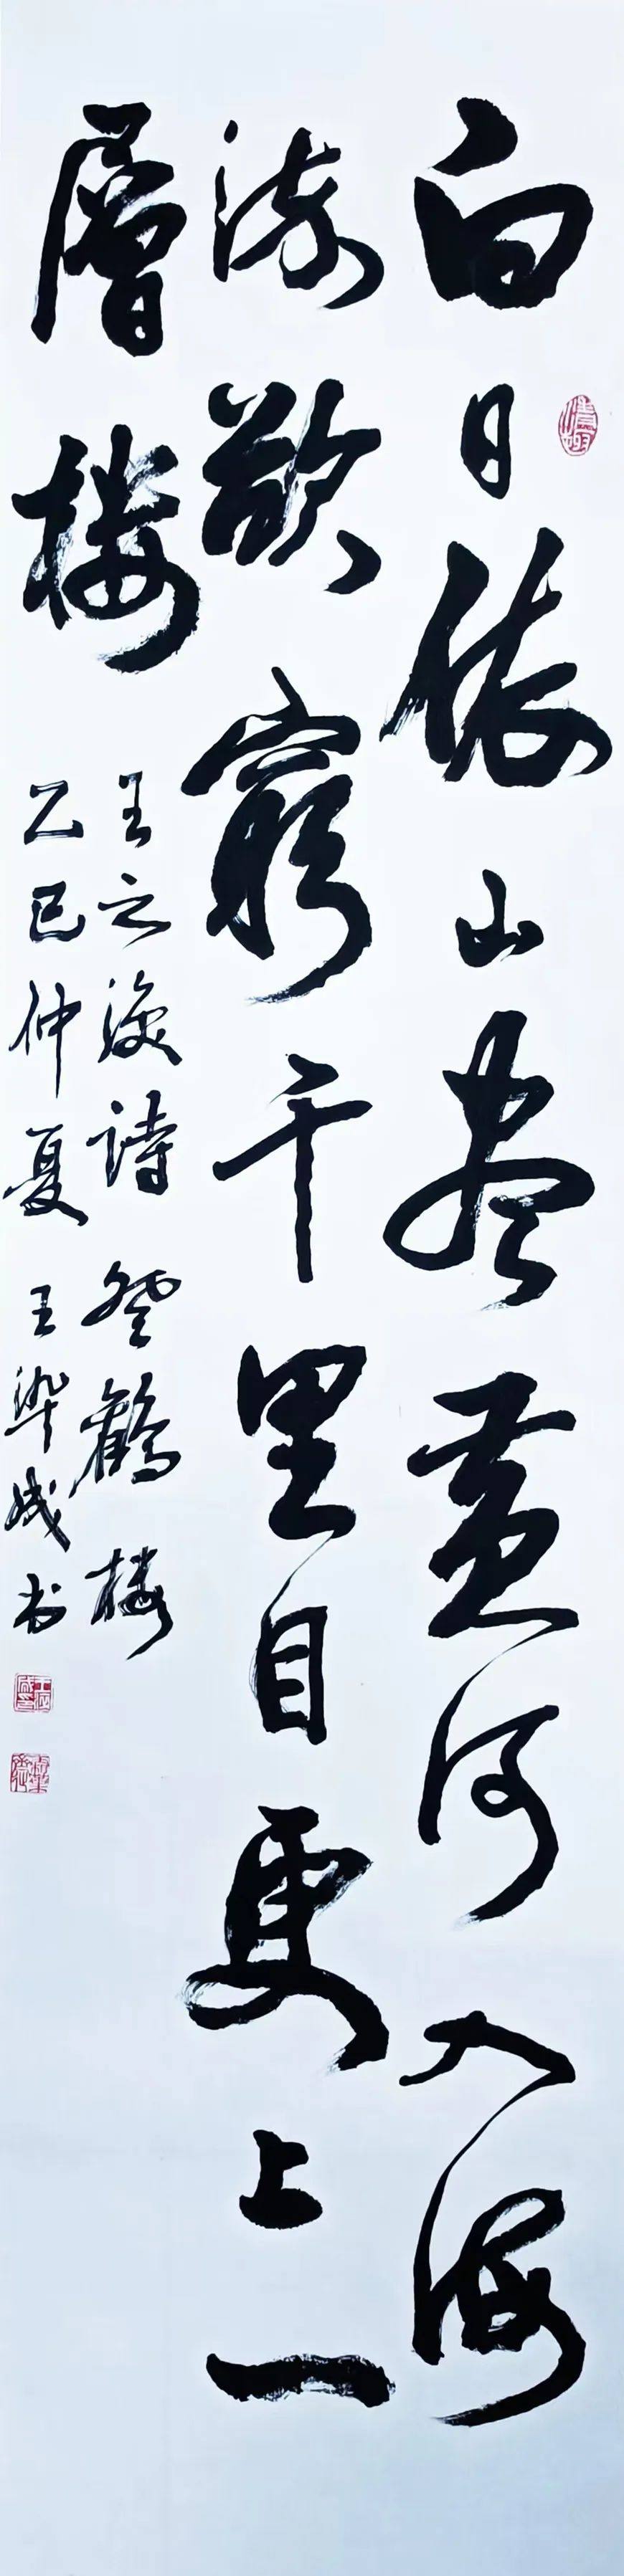 白日依山尽黄河入海
流欲穷千里目更上一
層楼
王之涣诗 登鹤楼
乙巳仲夏 王华成书